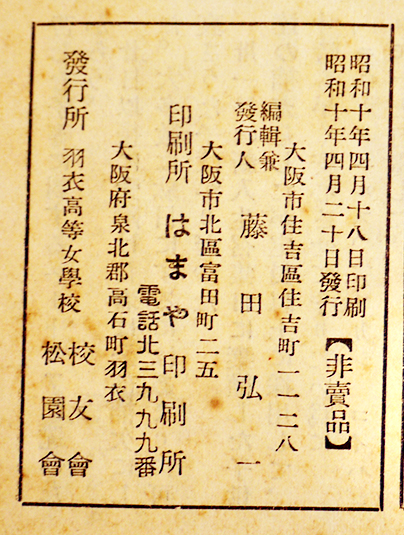 昭和十年四月十八日印刷
昭和十年四月二十日發行
【非賣品】
大阪市住吉區住吉町一一二八
編輯兼
發行人 藤田弘一
大阪市北區富田町二五
印刷所 はまや印刷所
電話北三九九九番
大阪府泉北郡高石町羽衣
發行所 羽衣高等女學校 校友會
松園會